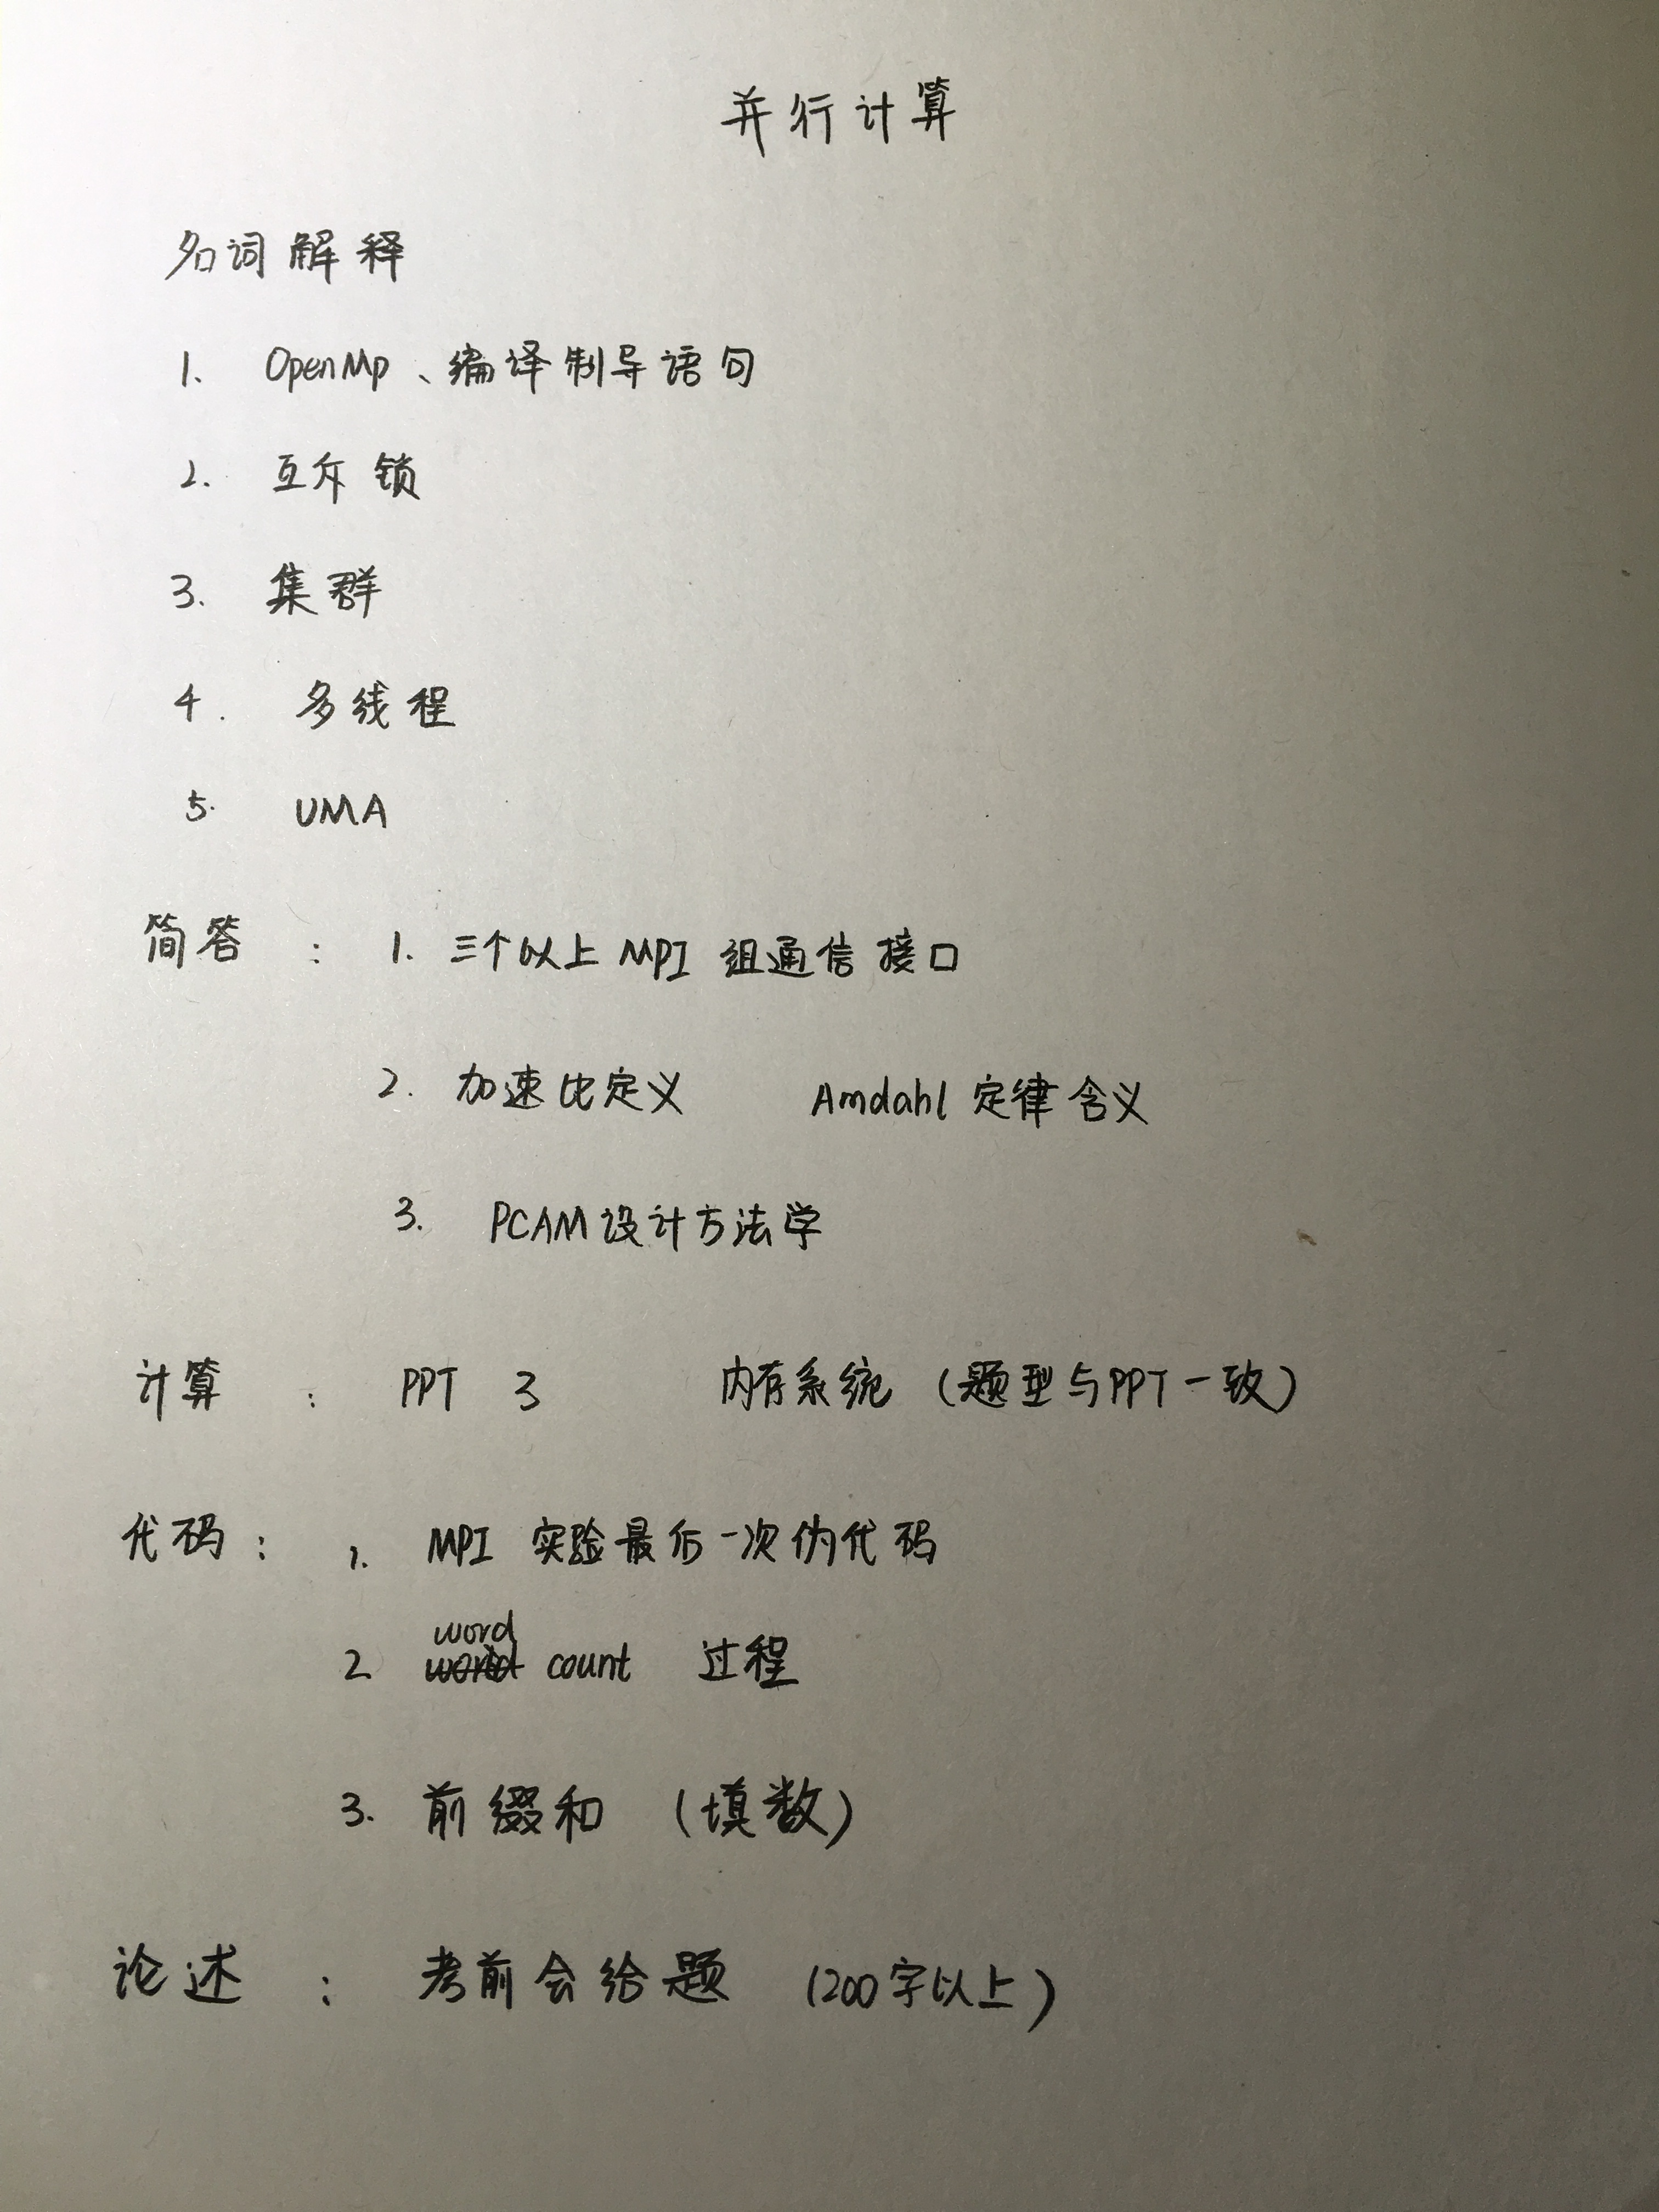 并行计算
名词解释
1. OpenMp、编译制导语句
2. 互斥锁
3. 集群
4. 多线程
5. UMA
简答 : 1. 三个以上 MPI 组通信接口
2. 加速比定义 Amdahl 定律含义
3. PCAM设计方法学
计算 : PPT 3 内存系统 (题型与PPT一致)
代码 : 1. MPI 实验最后一次伪代码
2 word count 过程
3. 前缀和 (填数)
论述 : 考前会给题 (200字以上)